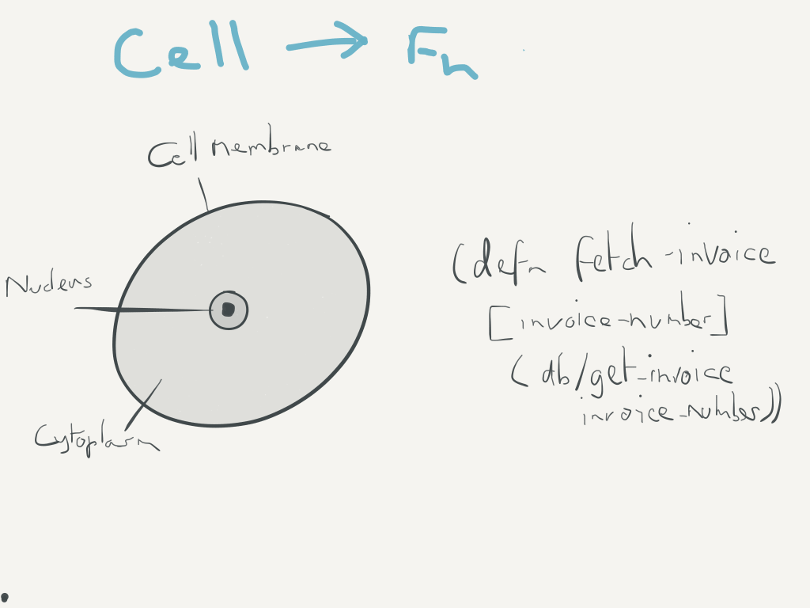 Cell → Fn
Cell membrane
Nucleus
Cytoplasm
(defn fetch-invoice
[invoice-number]
(db/get-invoice
invoice-number))